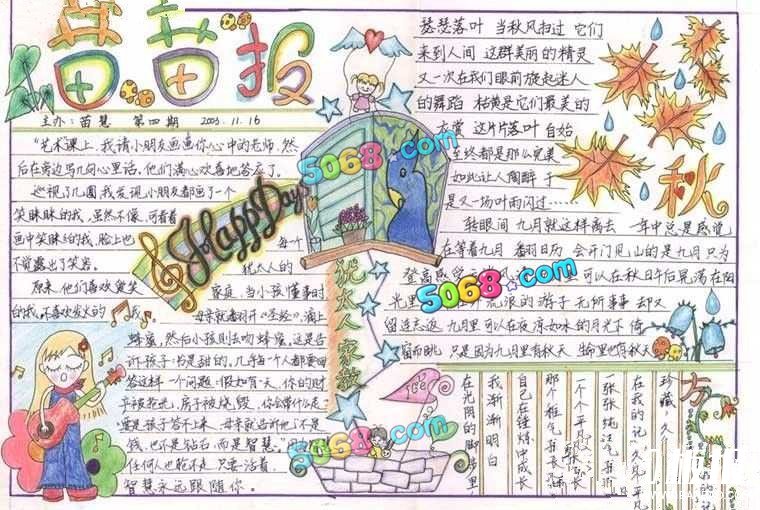 苗苗报
主办：苗慧 第四期 2003.11.16
"艺术"课上，我请小朋友画画你心中的老师，然
后在旁边写几句心里话，他们满心欢喜地答应了。
巡视了几圈，我发现小朋友都画了一个
笑眯眯的我，虽然不像，可看着
画中笑眯眯的我，脸上也
不觉露出了笑容。
原来，他们喜欢爱笑
的我，不喜欢发火的我。
HappyDays
犹太人家教
每个
犹太人的
家庭，当小孩懂事时
母亲就翻开《圣经》，滴上
蜂蜜，然后小孩则去吻蜂蜜，这是告
诉孩子：书是甜的。几乎每个人都要回
答这样一个问题：假如有一天，你的财
产被抢光，房子被烧毁，你会带什么走？
要是孩子答不上来，母亲就告诉他：不是
钱，也不是钻石，而是智慧。
任何人也抢不走，只要活着，
智慧永远跟随你。
秋
瑟瑟落叶 当秋风扫过 它们
来到人间 这群美丽的精灵
又一次在我们眼前旋起迷人
的舞蹈 枯黄是它们最美的
衣裳 这片片落叶 自始
至终都是那么完美
如此让人陶醉 于
是又一场叶雨闪过……
转眼间 九月就这样离去 一年中总是感觉
在等着九月 翻日历 会开门见山的是九月 只为
登高感受 可以在秋日午后晃荡在阳
光里 流浪的游子 无所事事 却又
留连忘返 九月里 可以在夜凉如水的月光下 倚
窗而眺 只是因为九月里有秋天 生命里也有秋天
方
珍藏，久
在我的记
一张张纯洁
一个个平凡
那个稚气
自己在锤炼中成长
我渐渐明白
在光阴的脚步里
5068.com
5068.com
5068.com
5068.com